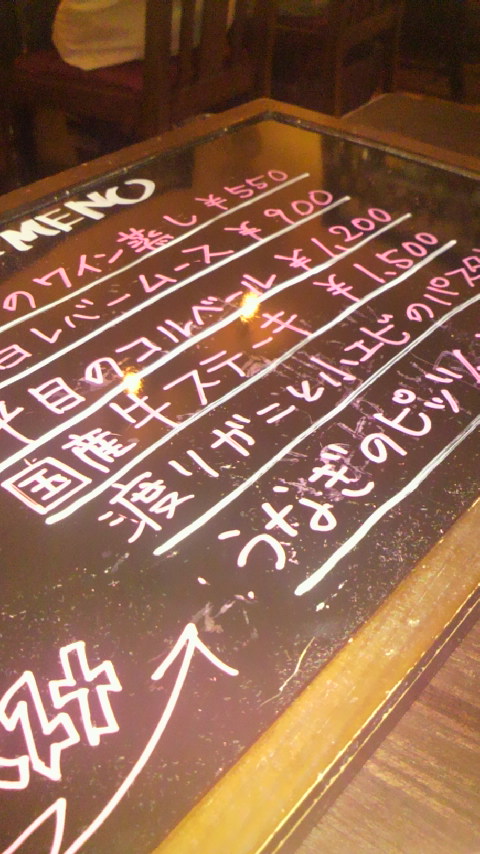 MENU
のワイン蒸し ¥550
白レバームース ¥900
平目のコルベール ¥1,200
国産牛ステーキ ¥1,500
渡りガニと小エビのパスタ
うなぎのピッツ